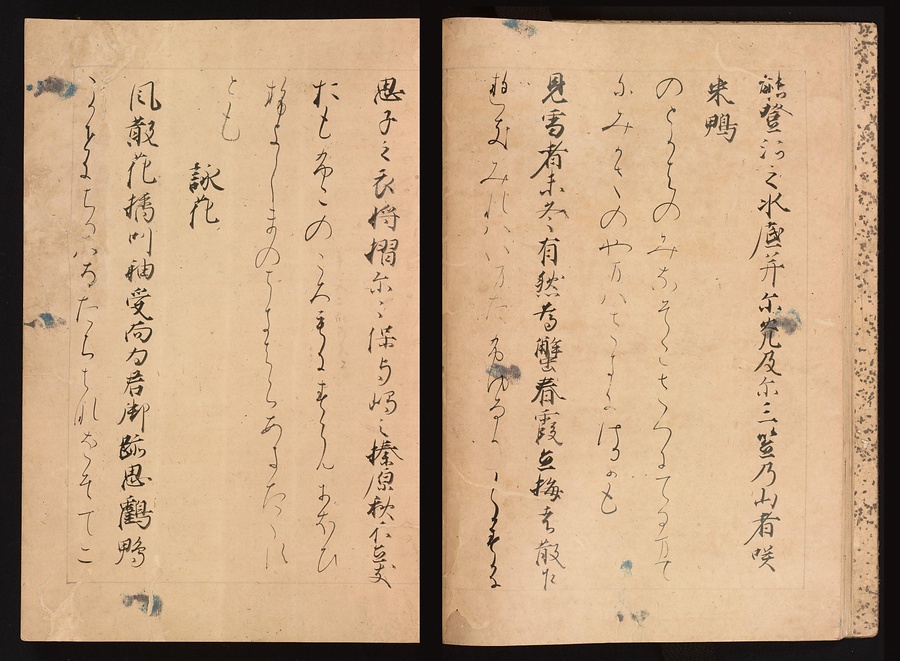 能登河之水底并尓光及尓三笠乃山者咲
来鴨
のとかはのみなそこさへにてるまて
にみかさのやまはさきにけるかも
見雪者未冬有然為蟹春霞立梅者散乍
ゆきみれはいまたふゆなりしかすかに
思子之衣将摺尓〻保与嶋之榛原秋不立友
おもふこのころもすらんににほひ
せよしまのはきはらあきたゝす
とも
詠花
風散花橘叫袖受而為君御跡思鶴鴨
かせにちるはなたちはなをそてに